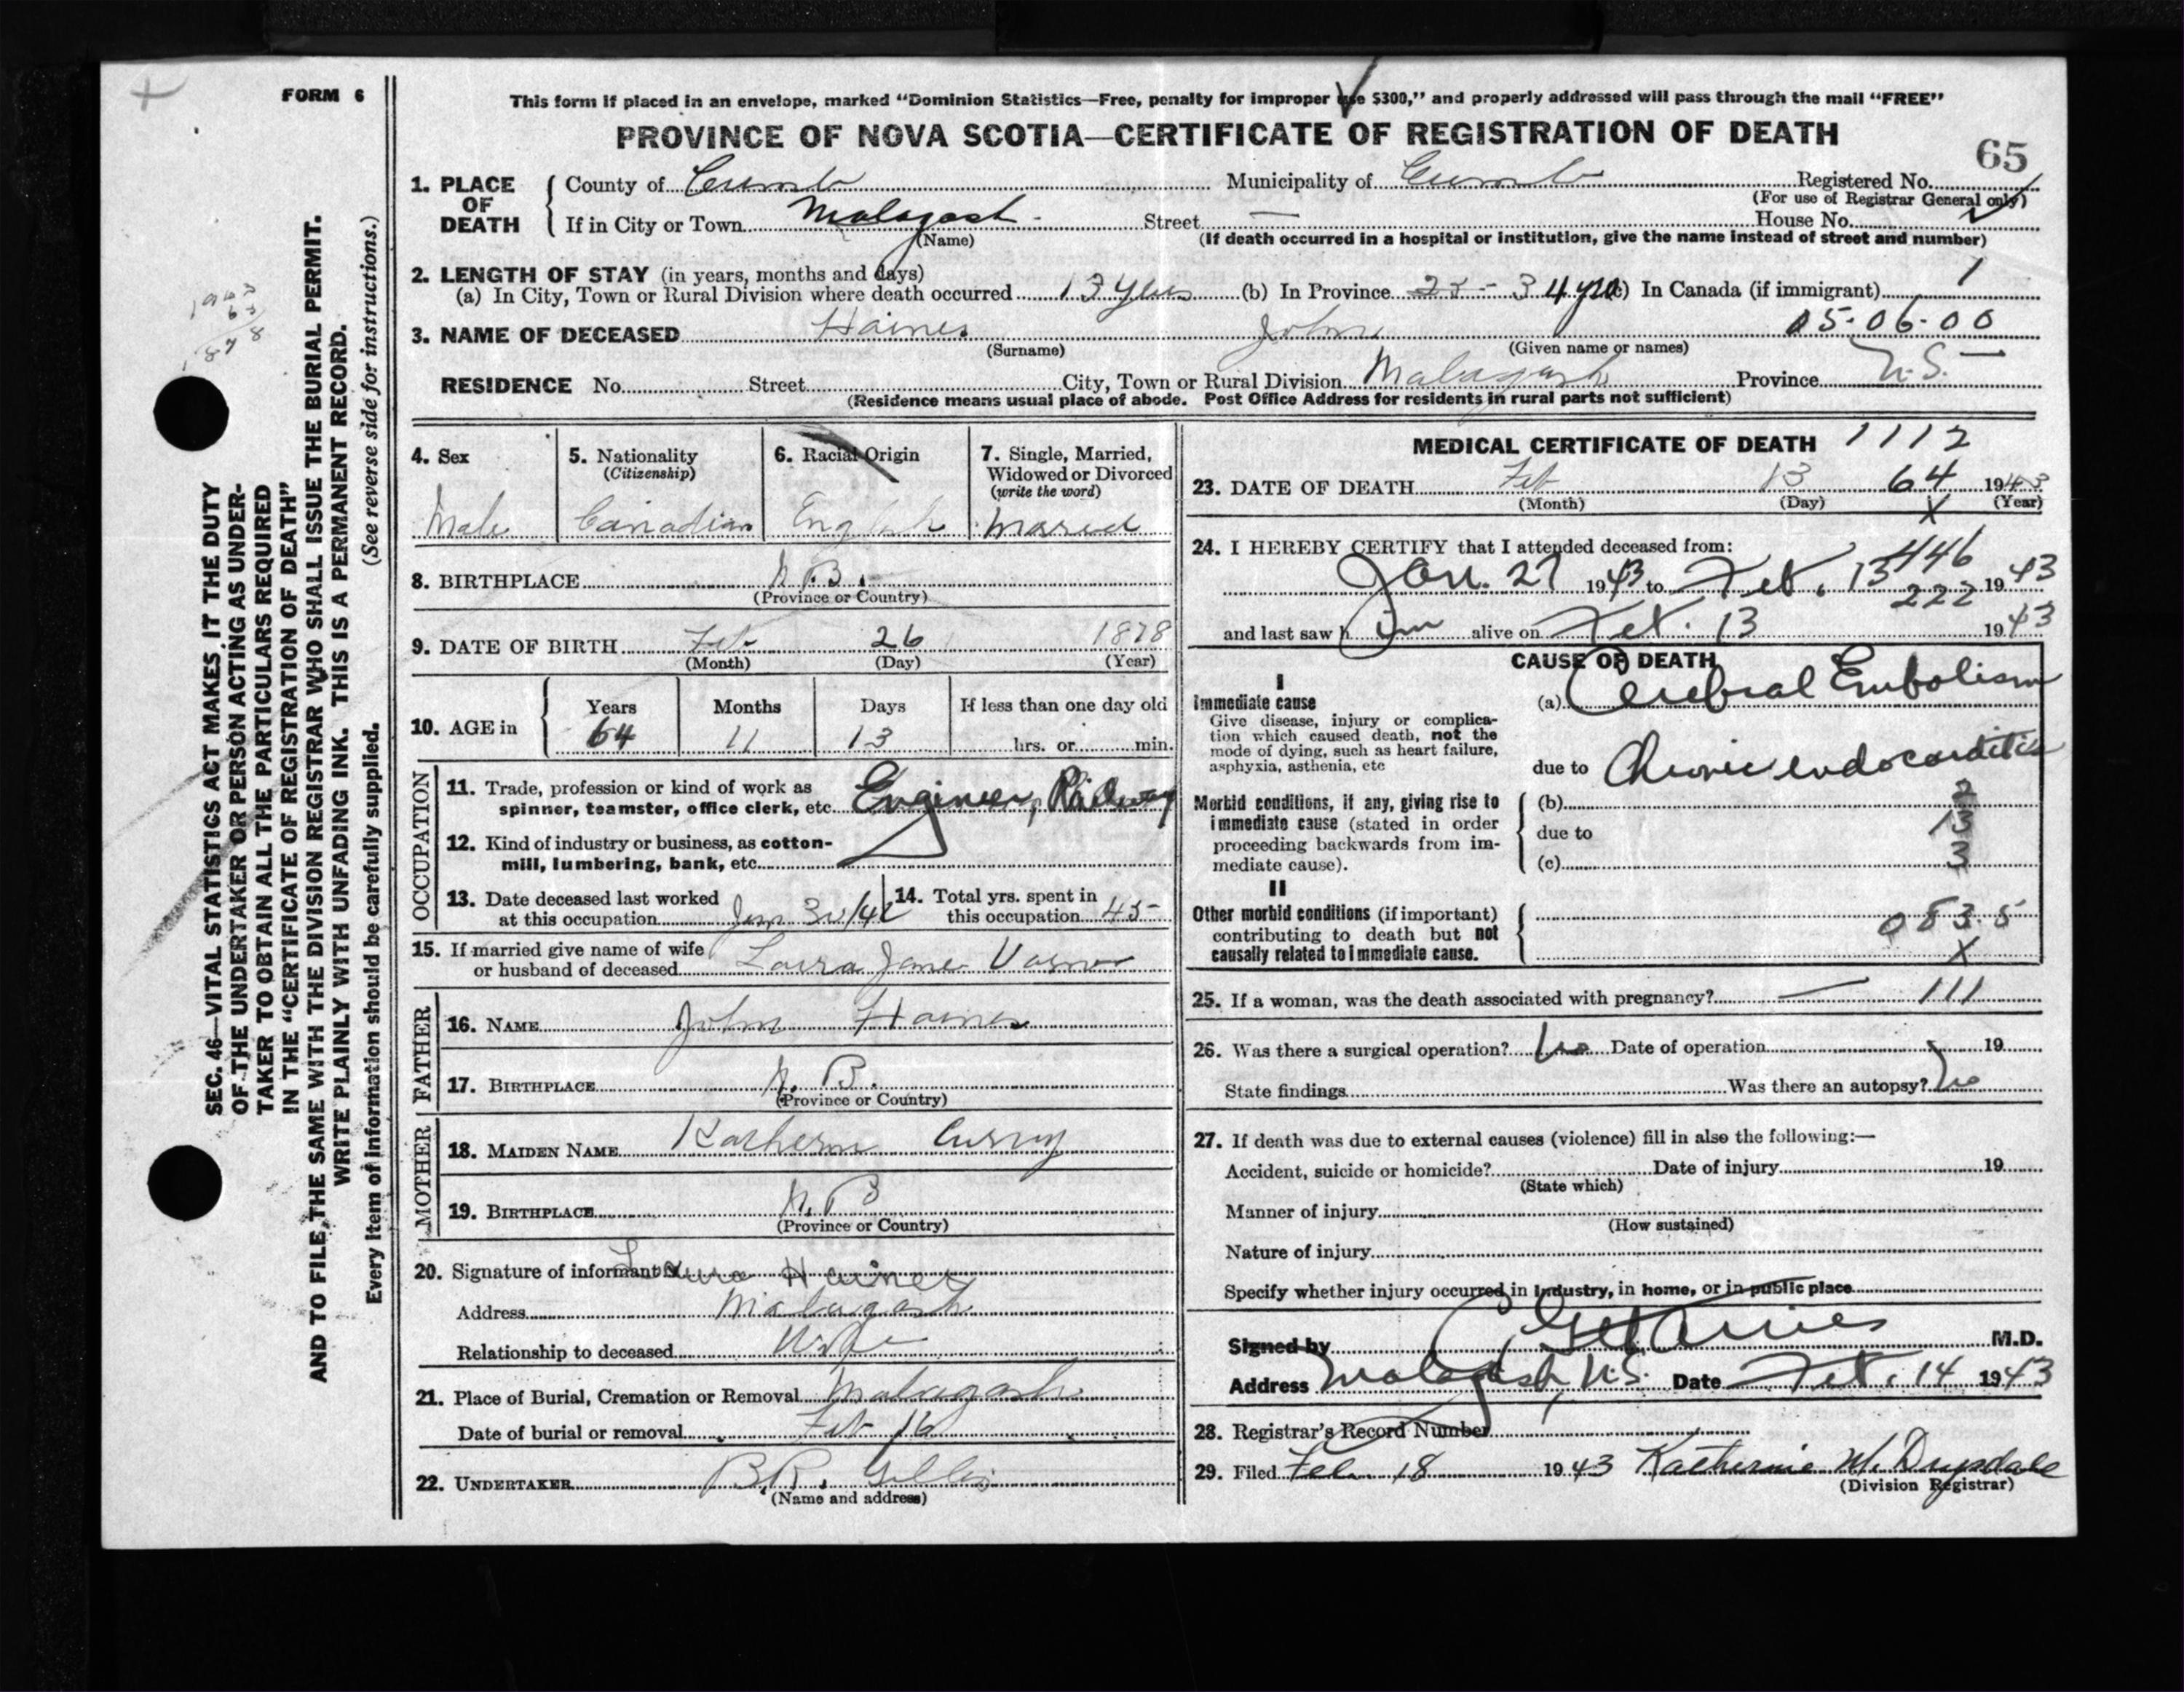 FORM 6
This form if placed in an envelope, marked "Dominion Statistics—Free, penalty for improper use $300," and properly addressed will pass through the mail "FREE"
PROVINCE OF NOVA SCOTIA—CERTIFICATE OF REGISTRATION OF DEATH
65
1. PLACE OF DEATH
County of Cumb Municipality of Cumb Registered No.
(For use of Registrar General only)
If in City or Town Malagash - Street — House No.
(Name) (If death occurred in a hospital or institution, give the name instead of street and number)
2. LENGTH OF STAY (in years, months and days) 1
(a) In City, Town or Rural Division where death occurred 13 years (b) In Province 34 yrs (c) In Canada (if immigrant)
3. NAME OF DECEASED Haines John 05-06-00
(Surname) (Given name or names)
RESIDENCE No. Street City, Town or Rural Division Malagash Province N.S. —
(Residence means usual place of abode. Post Office Address for residents in rural parts not sufficient)
4. Sex
Male
5. Nationality
(Citizenship)
Canadian
6. Racial Origin
English
7. Single, Married, Widowed or Divorced
(write the word)
Maried
8. BIRTHPLACE N.B.
(Province or Country)
9. DATE OF BIRTH Feb 26 1878
(Month) (Day) (Year)
10. AGE in
Years Months Days If less than one day old
64 11 13 hrs. or min.
OCCUPATION
11. Trade, profession or kind of work as
spinner, teamster, office clerk, etc. Engineer, Railway
12. Kind of industry or business, as cotton-
mill, lumbering, bank, etc.
13. Date deceased last worked
at this occupation
14. Total yrs. spent in
this occupation 45
15. If married give name of wife
or husband of deceased Laura Jane
FATHER
16. NAME John Haines
17. BIRTHPLACE N. B.
(Province or Country)
MOTHER
18. MAIDEN NAME Katherine Curry
19. BIRTHPLACE N. B
(Province or Country)
20. Signature of informant Laura Haines
Address Malagash
Relationship to deceased Wife
21. Place of Burial, Cremation or Removal Malagash
Date of burial or removal Feb 16
22. UNDERTAKER B.R. Gillis
(Name and address)
MEDICAL CERTIFICATE OF DEATH 1112
23. DATE OF DEATH Feb 13 64 1943
(Month) (Day) X (Year)
24. I HEREBY CERTIFY that I attended deceased from:
446
Jan. 27 1943 to Feb. 13 1943
222
and last saw him alive on Feb. 13 1943
CAUSE OF DEATH
I
Immediate cause
Give disease, injury or complica-
tion which caused death, not the
mode of dying, such as heart failure,
asphyxia, asthenia, etc
(a) Cerebral Embolism
due to Chronic endocarditis
Morbid conditions, if any, giving rise to
immediate cause (stated in order
proceeding backwards from im-
mediate cause).
(b) 2
due to 13
(c) 3
II
Other morbid conditions (if important)
contributing to death but not
causally related to immediate cause.
083.5
X
25. If a woman, was the death associated with pregnancy? — 111
26. Was there a surgical operation? No Date of operation 19
State findings Was there an autopsy? No
27. If death was due to external causes (violence) fill in also the following:—
Accident, suicide or homicide? Date of injury 19
(State which)
Manner of injury
(How sustained)
Nature of injury
Specify whether injury occurred in industry, in home, or in public place
Signed by M.D.
Address Malagash, N.S. Date Feb. 14 1943
28. Registrar's Record Number
29. Filed Feb. 18 1943 Katherine M. Drysdale
(Division Registrar)
SEC. 46—VITAL STATISTICS ACT MAKES IT THE DUTY
OF THE UNDERTAKER OR PERSON ACTING AS UNDER-
TAKER TO OBTAIN ALL THE PARTICULARS REQUIRED
IN THE "CERTIFICATE OF REGISTRATION OF DEATH"
AND TO FILE THE SAME WITH THE DIVISION REGISTRAR WHO SHALL ISSUE THE BURIAL PERMIT.
WRITE PLAINLY WITH UNFADING INK. THIS IS A PERMANENT RECORD.
Every item of information should be carefully supplied. (See reverse side for instructions.)